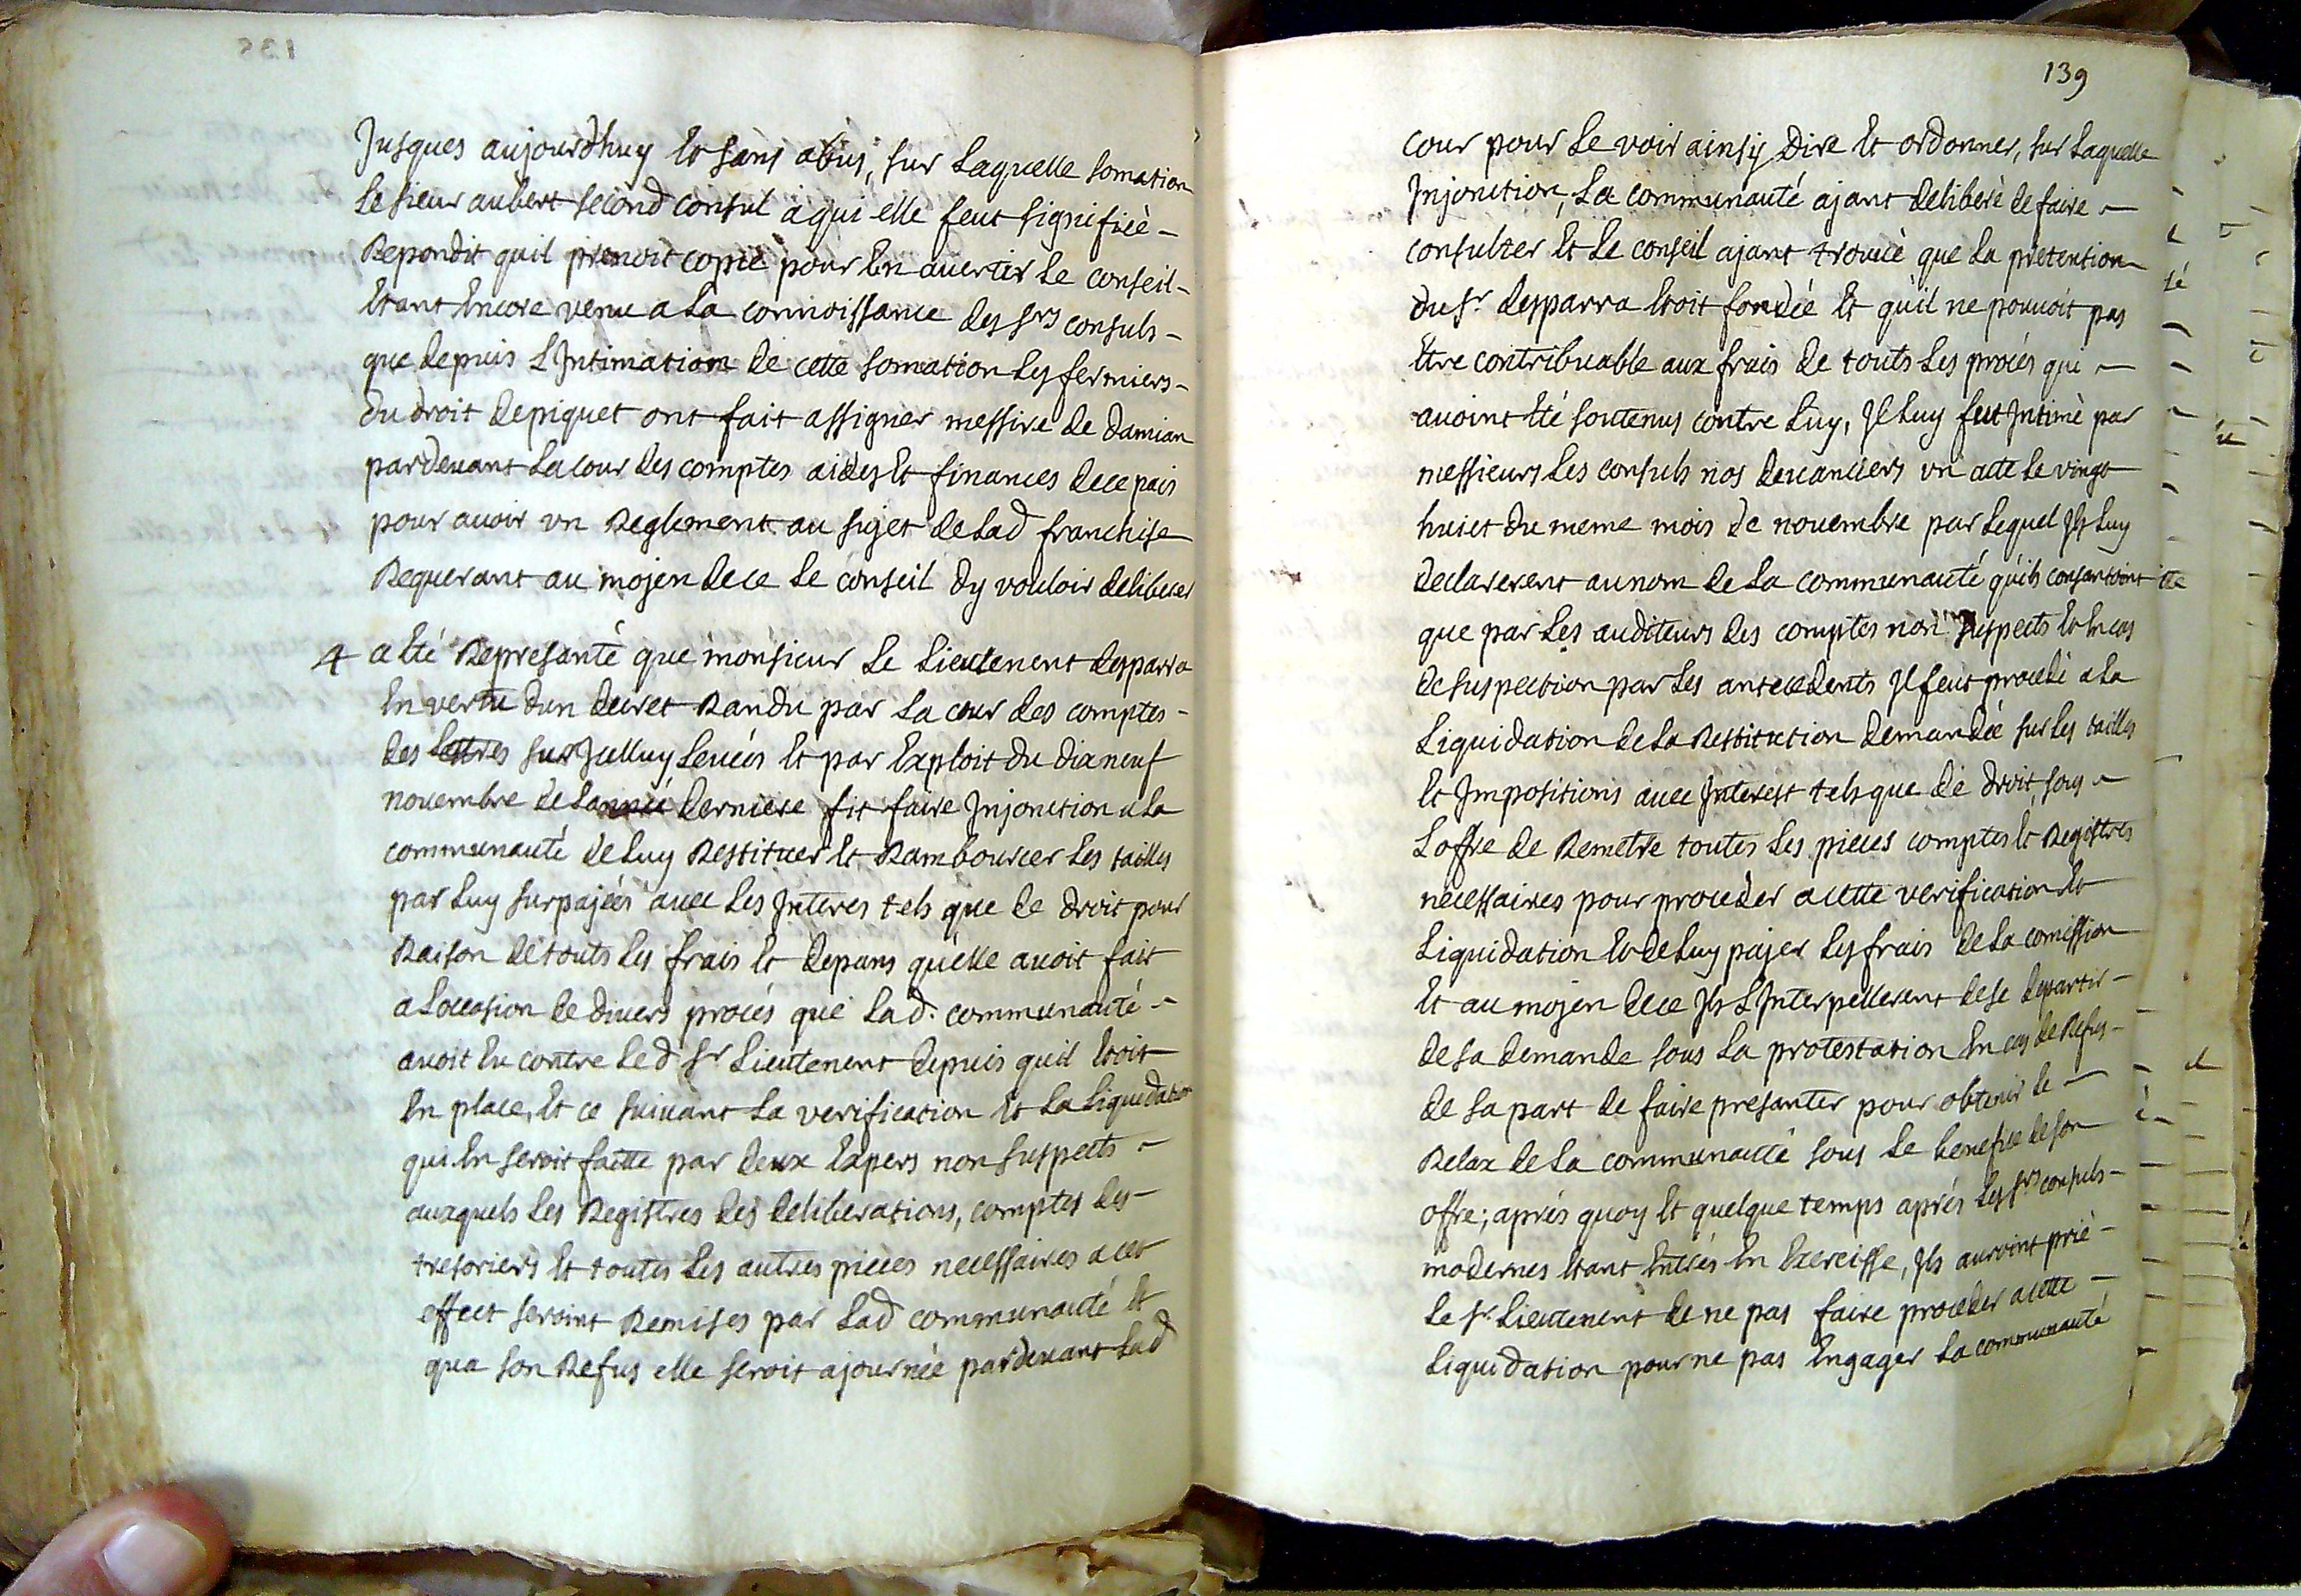 Jusques aujourdhuy et sans abus, sur Laquelle somation
Le sieur aubert second consul a qui elle feut signifiée -
Repondit quil prenoit copie pour En auertir Le conseil -
Etant Encore venu a La connoissance des srs consuls -
que depuis L'Intimation de cette somation Les fermiers -
du droit de piquet ont fait assigner messire de damian
pardeuant La cour des comptes aides Et finances de ce pais
pour auoir vn Reglement au sujet de Lad franchise
Requerant au mojen de ce Le conseil dy vouloir deliberer
4 a Eté Represanté que monsieur Le Lieutenent desparra
En vertu dun decret Randu par La cour des comptes -
des Lettres sur Jcelluy Leuées Et par Exploit du dixneuf
nouembre de Lannée derniere fit faire Injonction a La
communauté de Luy Restituer Et Rambourcer Les tailles
par Luy surpajées auec Les Interes tels que de droit pour
Raison de touts Les frais Et depans quelle auoit fait
a Loccasion de diuers procés que Lad. communauté -
auoit Eu contre Led sr Lieutenent depuis quil Etoit
En place, Et ce suiuant La verification Et La Liquidation
qui En seroit faitte par deux Expers non suspects -
auxquels Les Registres des deliberations, comptes des -
tresoriers Et toutes Les autres pieces necessaires a cet
effect seroint Remises par Lad communauté Et
qua son Refus elle seroit ajournée pardeuant Lad
139
cour pour Le voir ainsy dire Et ordonner, sur Laquelle
Injonction, La communauté ajant deliberé de faire -
consulter Et Le conseil ajant trouué que La pretention
du sr. desparra Etoit fondée Et quil ne pouuoit pas
Etre contribuable aux frais de touts Les procés qui -
auoint Eté soutenus contre Luy, Jl Luy fut Intimé par
messieurs Les consuls nos deuanciers vn acte Le vingt
huict du meme mois de nouembre par Lequel Jls Luy
declarerent au nom de La communauté quils consantoint
que par Les auditeurs des comptes non suspects Et En cas
de suspection par Les antecedents Jl feut procedé a La
Liquidation de La Restitution demandée sur Les tailles
Et Impositions auec Interest tels que de droit, sous -
Loffre de Remetre toutes Les pieces comptes Et Registres
necessaires pour proceder a cette verification Et
Liquidation Et de Luy pajer Les frais de La comission
Et au mojen de ce Jls L'Interpellerent de se departir -
de sa demande sous La protestation En cas de Refus -
de sa part de faire presanter pour obtenir Le -
Relax de La communautté sous Le benefice de son
offre; aprés quoy Et quelque temps aprés Les srs consuls -
modernes Etant Entrés En Exercisse, Jls auroint prié -
Le sr. Lieutenent de ne pas faire proceder a cette -
Liquidation pour ne pas Engager La communauté